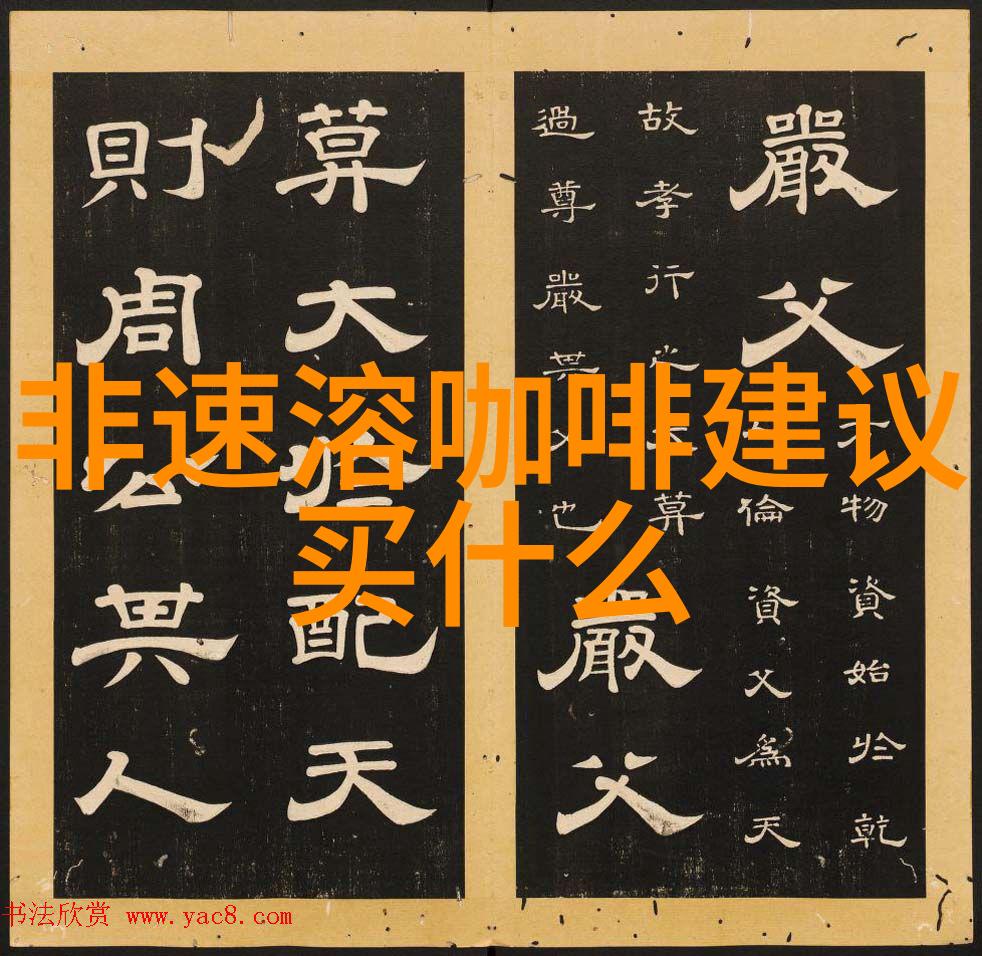 非速溶咖啡建议
买什么
嚴父
物資始於乾
倫資父為天
故孝行莫
過尊嚴其父也
嚴父
莫大於配天
則周公其人
书法欣赏 www.yac8.com